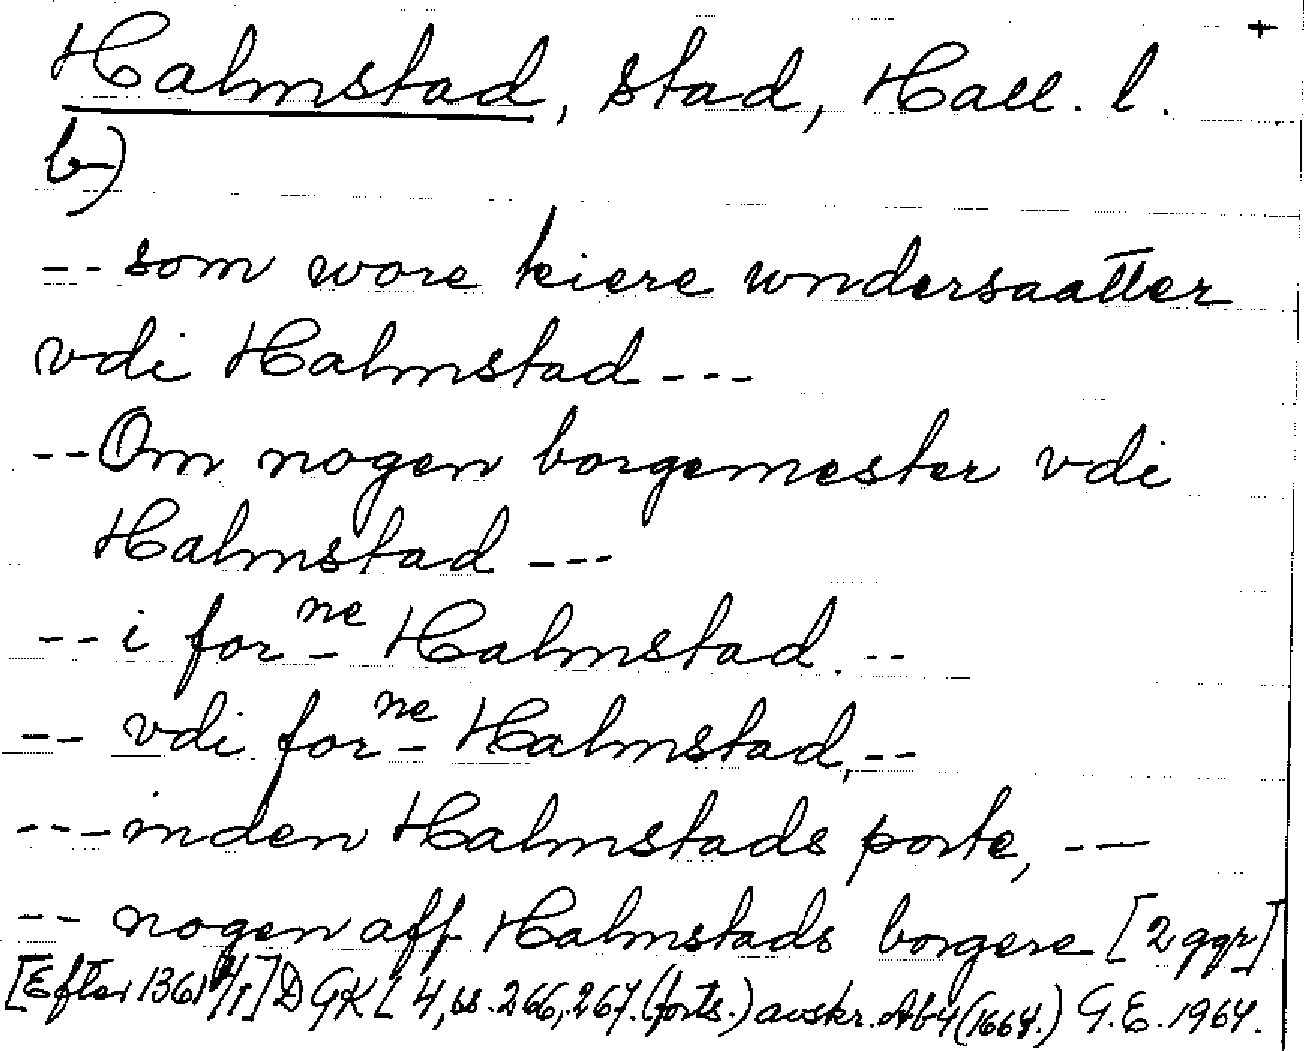 +
Halmstad, stad, Hall. l.
b)
-- som wore kiere wndersaatter
vdi Halmstad ---
-- Om nogen borgemester vdi
Halmstad ---
-- i for ne Halmstad. --
-- vdi for ne Halmstad, --
--- inden Halmstads porte, ---
-- nogen aff Halmstads borgere [2 ggr]
[Efter 1361 /1] DGKL 4, ss. 266, 267. (forts.) avskr. Ab 4 (1664.) G.E. 1964.